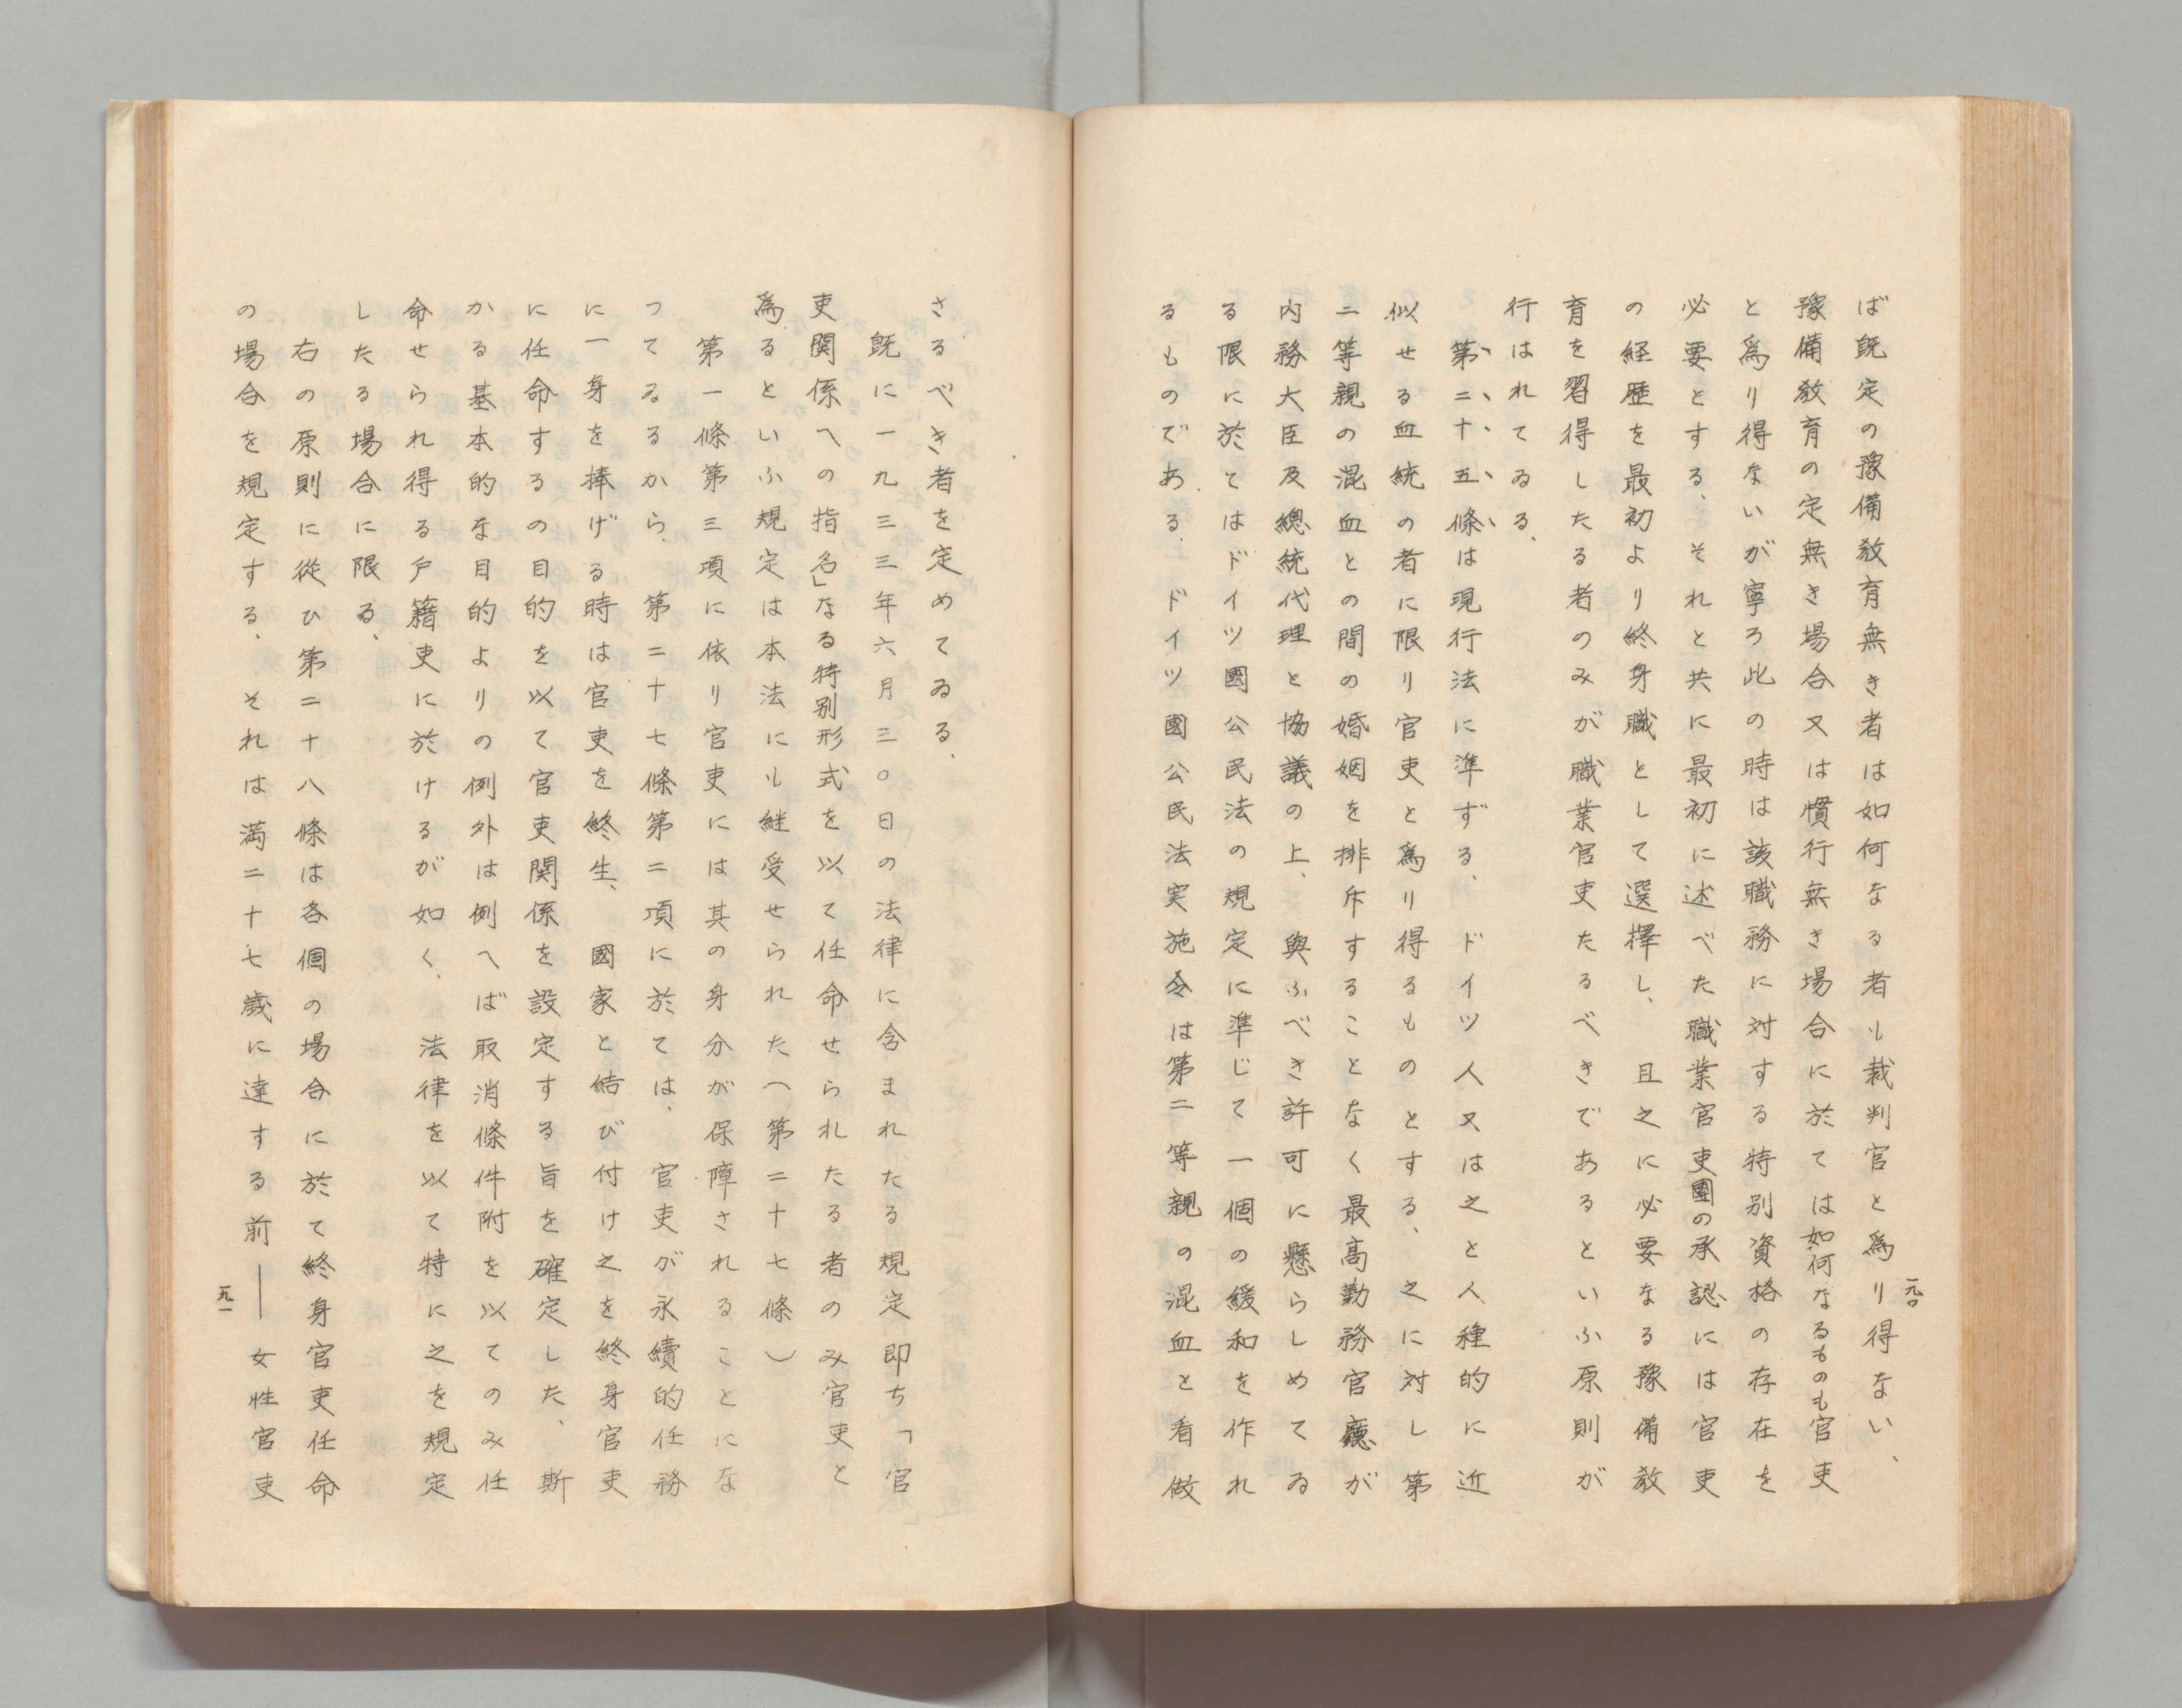 ば既定の豫備敎育無き者は如何なる者も裁判官と爲り得ない、
豫備敎育の定無き場合又は慣行無き場合に於ては如何なるものも官吏
と爲り得ないが寧ろ此の時は該職務に対する特別資格の存在を
必要とする、それと共に最初に述べた職業官吏團の承認には官吏
の経歴を最初より終身職として選擇し、且之に必要なる豫備敎
育を習得したる者のみが職業官吏たるべきであるといふ原則が
行はれてゐる、
第二十五條は現行法に準ずる、ドイツ人又は之と人種的に近
似せる血統の者に限り官吏と爲り得るものとする、之に対し第
二等親の混血との間の婚姻を排斥することなく最高勤務官廳が
内務大臣及總統代理と協議の上、與ふべき許可に懸らしめてゐ
る限に於てはドイツ國公民法の規定に準じて一個の緩和を作れ
るものである、ドイツ國公民法実施令は第二等親の混血と看做
一九〇
さるべき者を定めてゐる、
既に一九三三年六月三〇日の法律に含まれたる規定即ち「官
吏関係への指名」なる特別形式を以て任命せられたる者のみ官吏と
爲るといふ規定は本法にも継受せられた（第二十七條）
第一條第三項に依り官吏には其の身分が保障されることにな
つてゐるから、第二十七條第二項に於ては、官吏が永續的任務
に一身を捧げる時は官吏を終生、國家と結び付け之を終身官吏
に任命するの目的を以て官吏関係を設定する旨を確定した、斯
かる基本的な目的よりの例外は例へば取消條件附を以てのみ任
命せられ得る戸籍吏に於けるが如く、法律を以て特に之を規定
したる場合に限る、
右の原則に從ひ第二十八條は各個の場合に於て終身官吏任命
の場合を規定する、それは満二十七歳に達する前——女性官吏
一九一